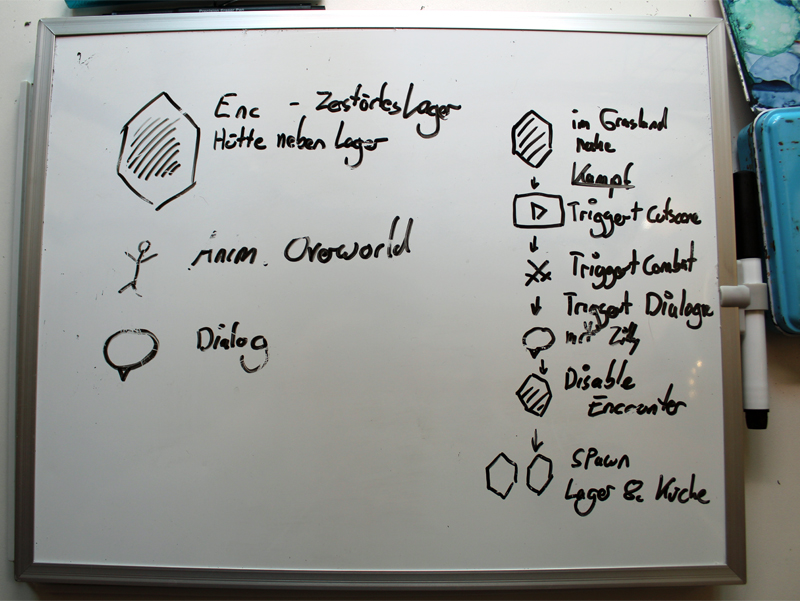 Enc - Zerstörtes Lager
Hütte neben Lager
Overworld
Dialog
im Grasland
nahe
Kampf
Triggert Cutscene
Triggert Combat
Triggert Dialog
mit
Disable
Encounter
Spawn
Lager & Küche